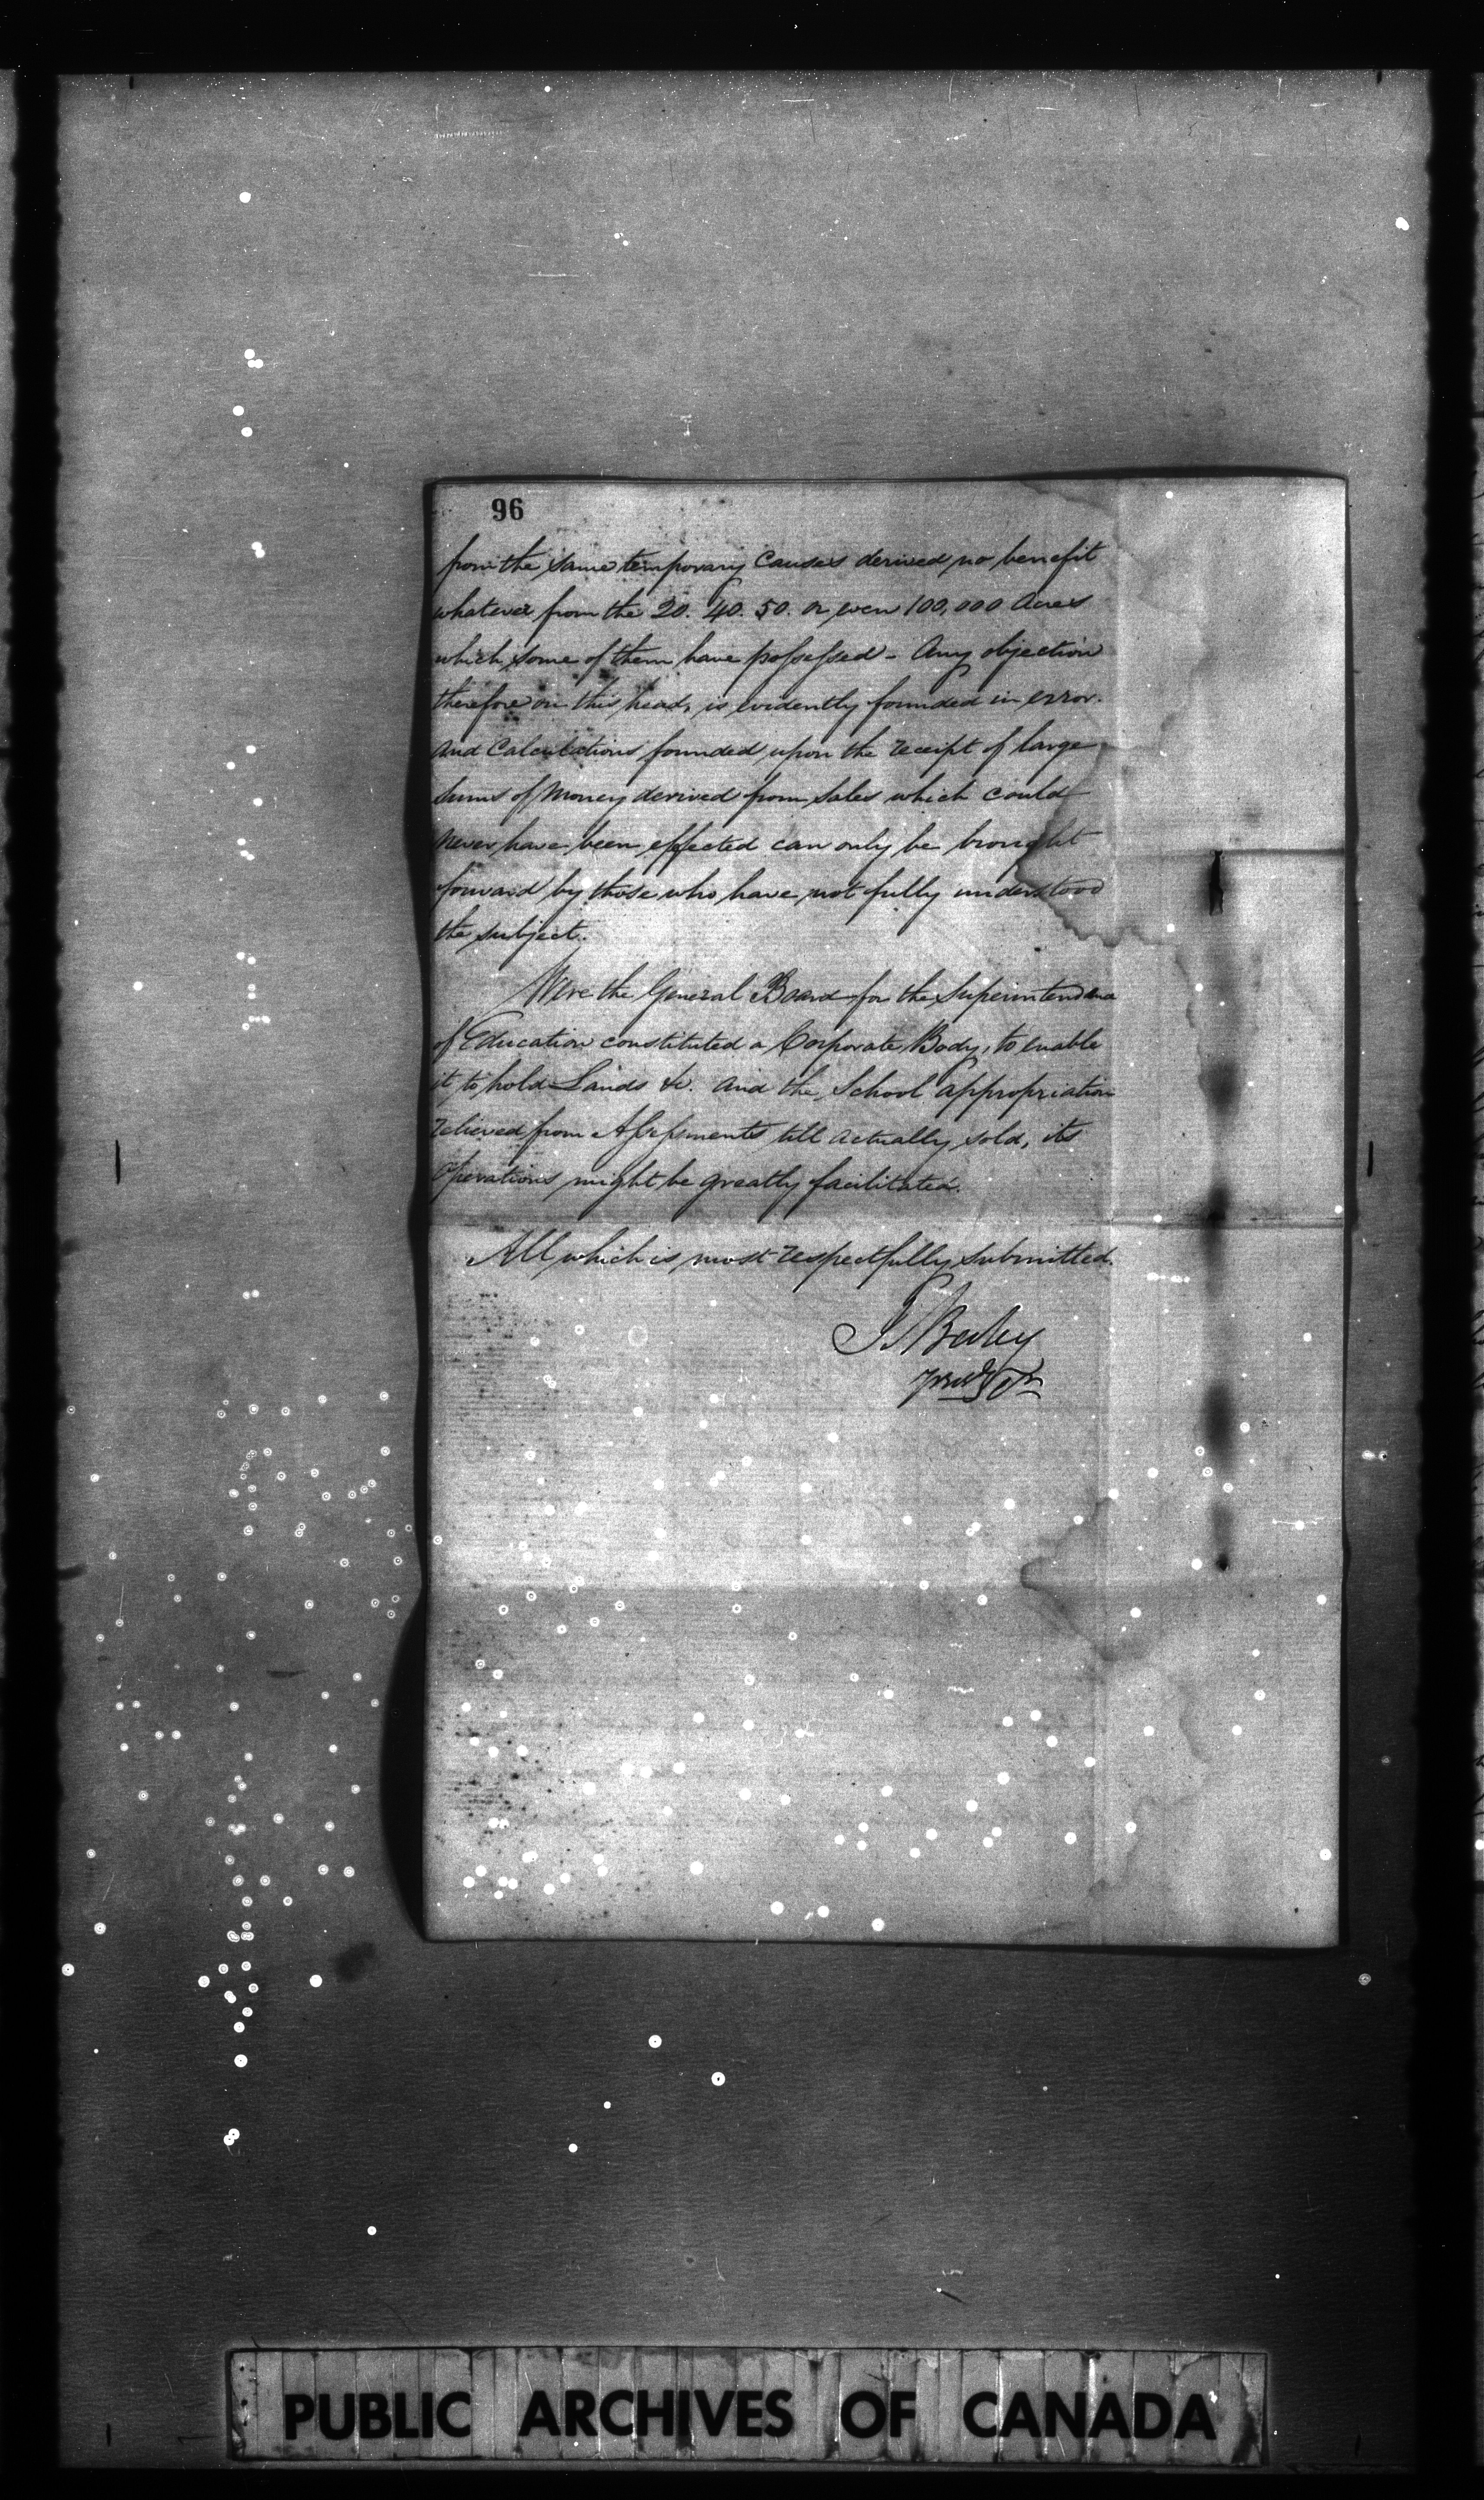 96
from the same temporary Causes derived no benefit
whatever from the 20. 40. 50. or even 100,000 Acres
which some of them have possessed - Any objection
therefore on this head, is evidently founded in error.
And Calculations founded upon the receipt of large
Sums of Money derived from Sales which could
Never have been effected can only be brought
forward by those who have not fully understood
the subject.
Were the General Board for the Superintendence
of Education constituted a Corporate Body, to enable
it to hold Lands &c. and the School appropriation
relieved from Assessments till actually sold, its
Operations might be greatly facilitated.
All which is most respectfully submitted.
PUBLIC ARCHIVES OF CANADA